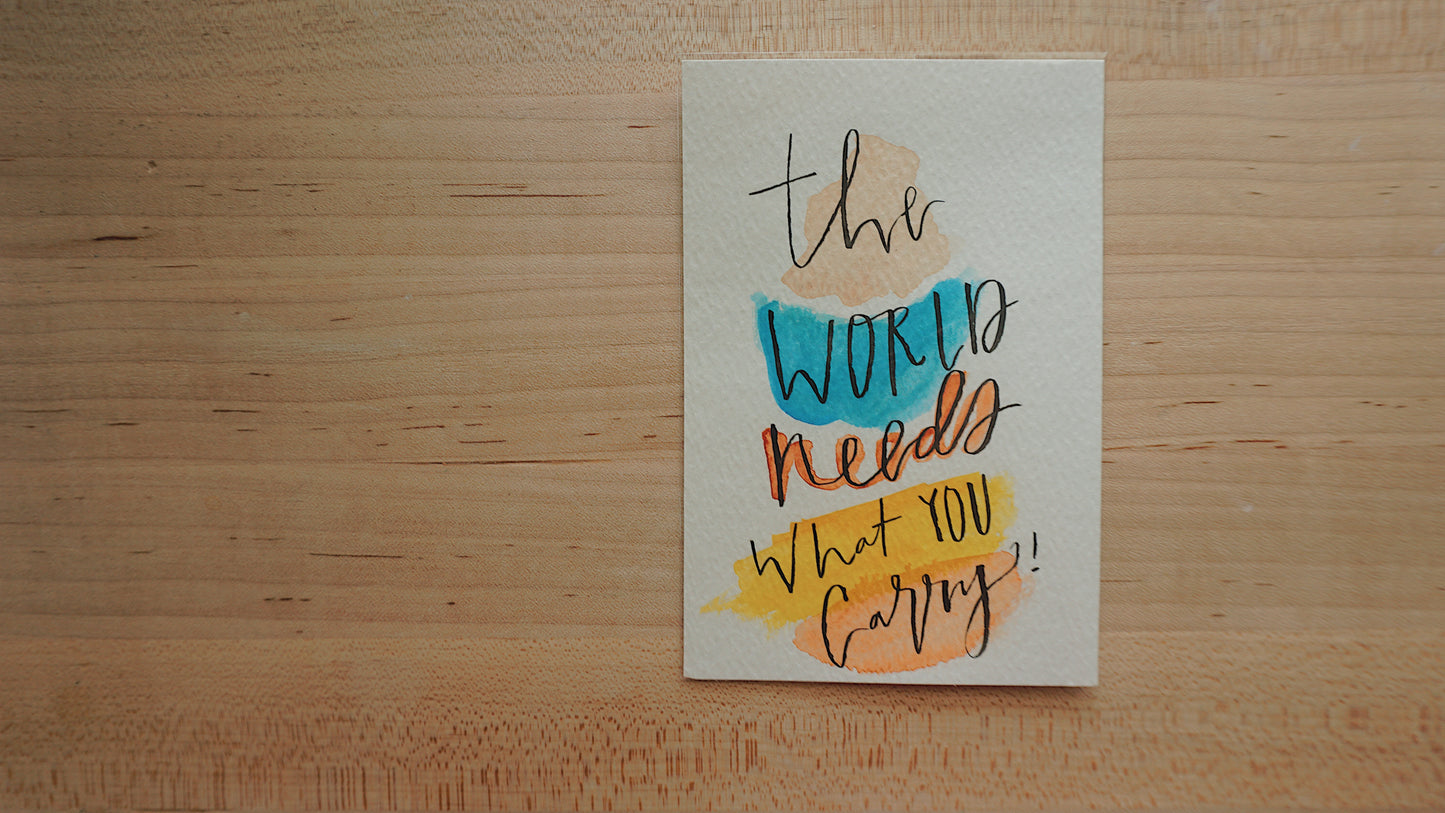 the
WORLD
needs
What YOU
Carry!